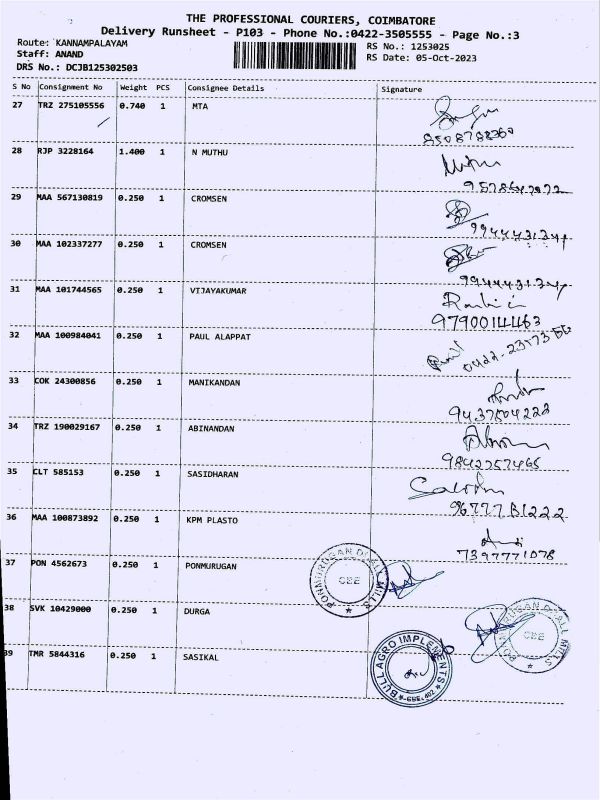 THE PROFESSIONAL COURIERS, COIMBATORE
Delivery Runsheet - P103 - Phone No.:0422-3505555 - Page No.:3
Route: KANNAMPALAYAM
RS No.: 1253025
Staff: ANAND
RS Date: 05-Oct-2023
DRS No.: DCJB125302503
S No Consignment No Weight PCS Consignee Details Signature
27 TRZ 275105556 0.740 1 MTA
28 RJP 3228164 1.400 1 N MUTHU
29 MAA 567130819 0.250 1 CROMSEN
30 MAA 102337277 0.250 1 CROMSEN
31 MAA 101744565 0.250 1 VIJAYAKUMAR
9790014463
32 MAA 100984041 0.250 1 PAUL ALAPPAT
33 COK 24300856 0.250 1 MANIKANDAN
9437504222
34 TRZ 190029167 0.250 1 ABINANDAN
9842257465
35 CLT 585153 0.250 1 SASIDHARAN
36 MAA 100873892 0.250 1 KPM PLASTO
7397771078
37 PON 4562673 0.250 1 PONMURUGAN
PONMURUGAN DHALL MILLS
CBE
38 SVK 10429000 0.250 1 DURGA
PONMURUGAN DHALL MILLS
CBE
39 TMR 5844316 0.250 1 SASIKAL
BULL AGRO IMPLEMENTS
CBE-402